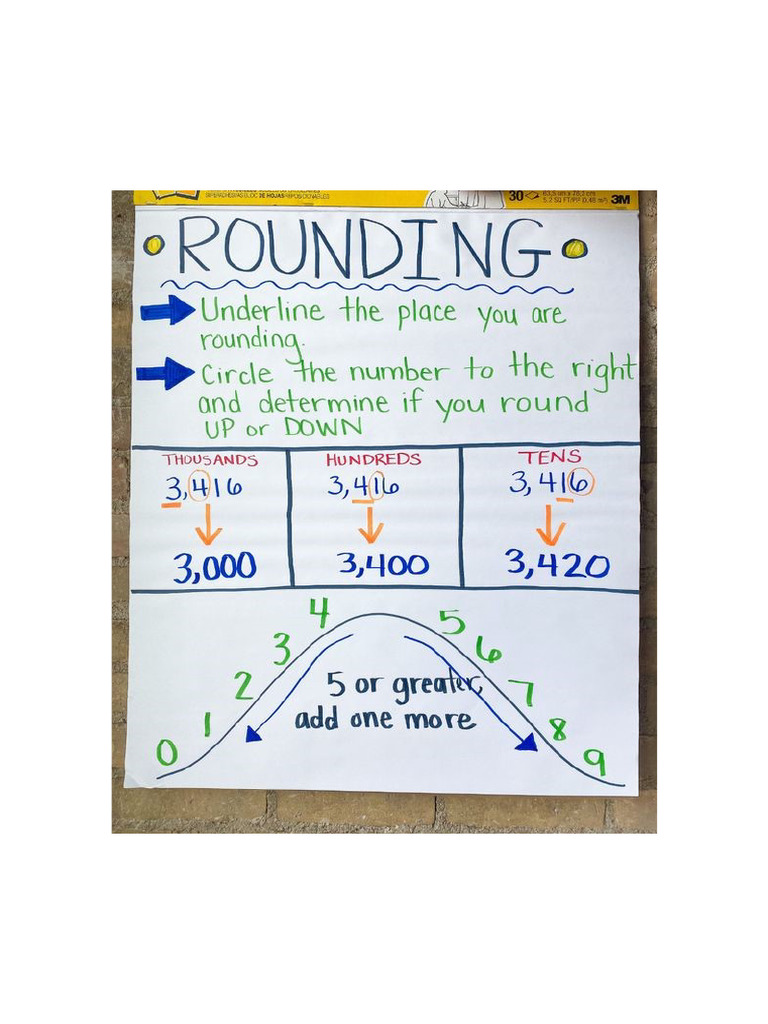 BLOC DE HOJAS REPOSICIONABLES
30
5.2 SQ FT/PI² (0.48 m²)
3M
ROUNDING
Underline the place you are
rounding.
Circle the number to the right
and determine if you round
UP or DOWN
THOUSANDS HUNDREDS TENS
3,416 3,416 3,416
3,000 3,400 3,420
4 5
3 6
2 5 or greater, 7
1 add one more 8
0 9